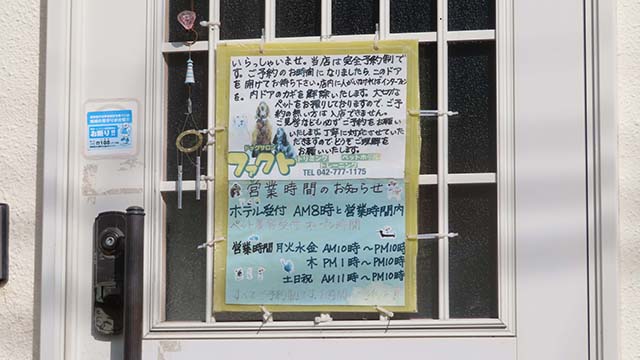 いらっしゃいませ。当店は完全予約制で
す。ご予約のお時間になりましたらこのドア
を開けてお待ち下さい。店内に人がいなければインターフォン
を。内ドアのカギを解除いたします。大切な
ペットをお預りしておりますので、ご予
約の無い方は入店できません。
ご見学なども必ずご予約をお願い
いたします。丁寧に対応させていた
だきますのでどうぞご理解を
お願いいたします。
ドッグサロン
ファクト
トリミング ペットホテル
トレーニング
TEL 042-777-1175
営業時間のお知らせ
ホテル受付 AM8時と営業時間内
営業時間 月火水金 AM10時〜PM10時
木 PM1時〜PM10時
土日祝 AM11時〜PM10時
お断り!!